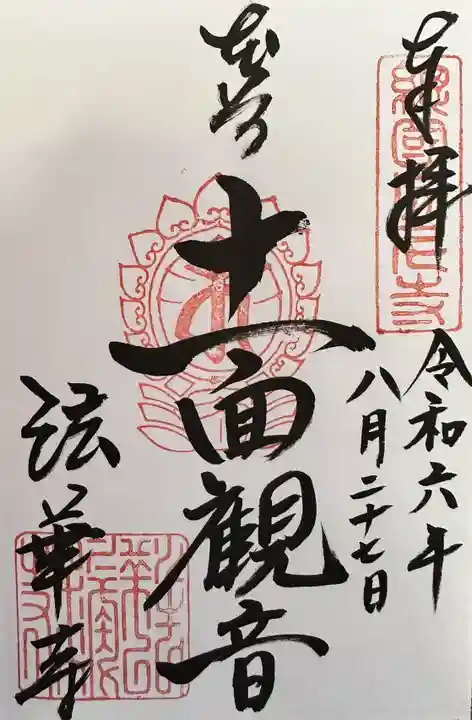 奉拝
令和六年
八月二十七日
本尊
十一面観音
法華寺